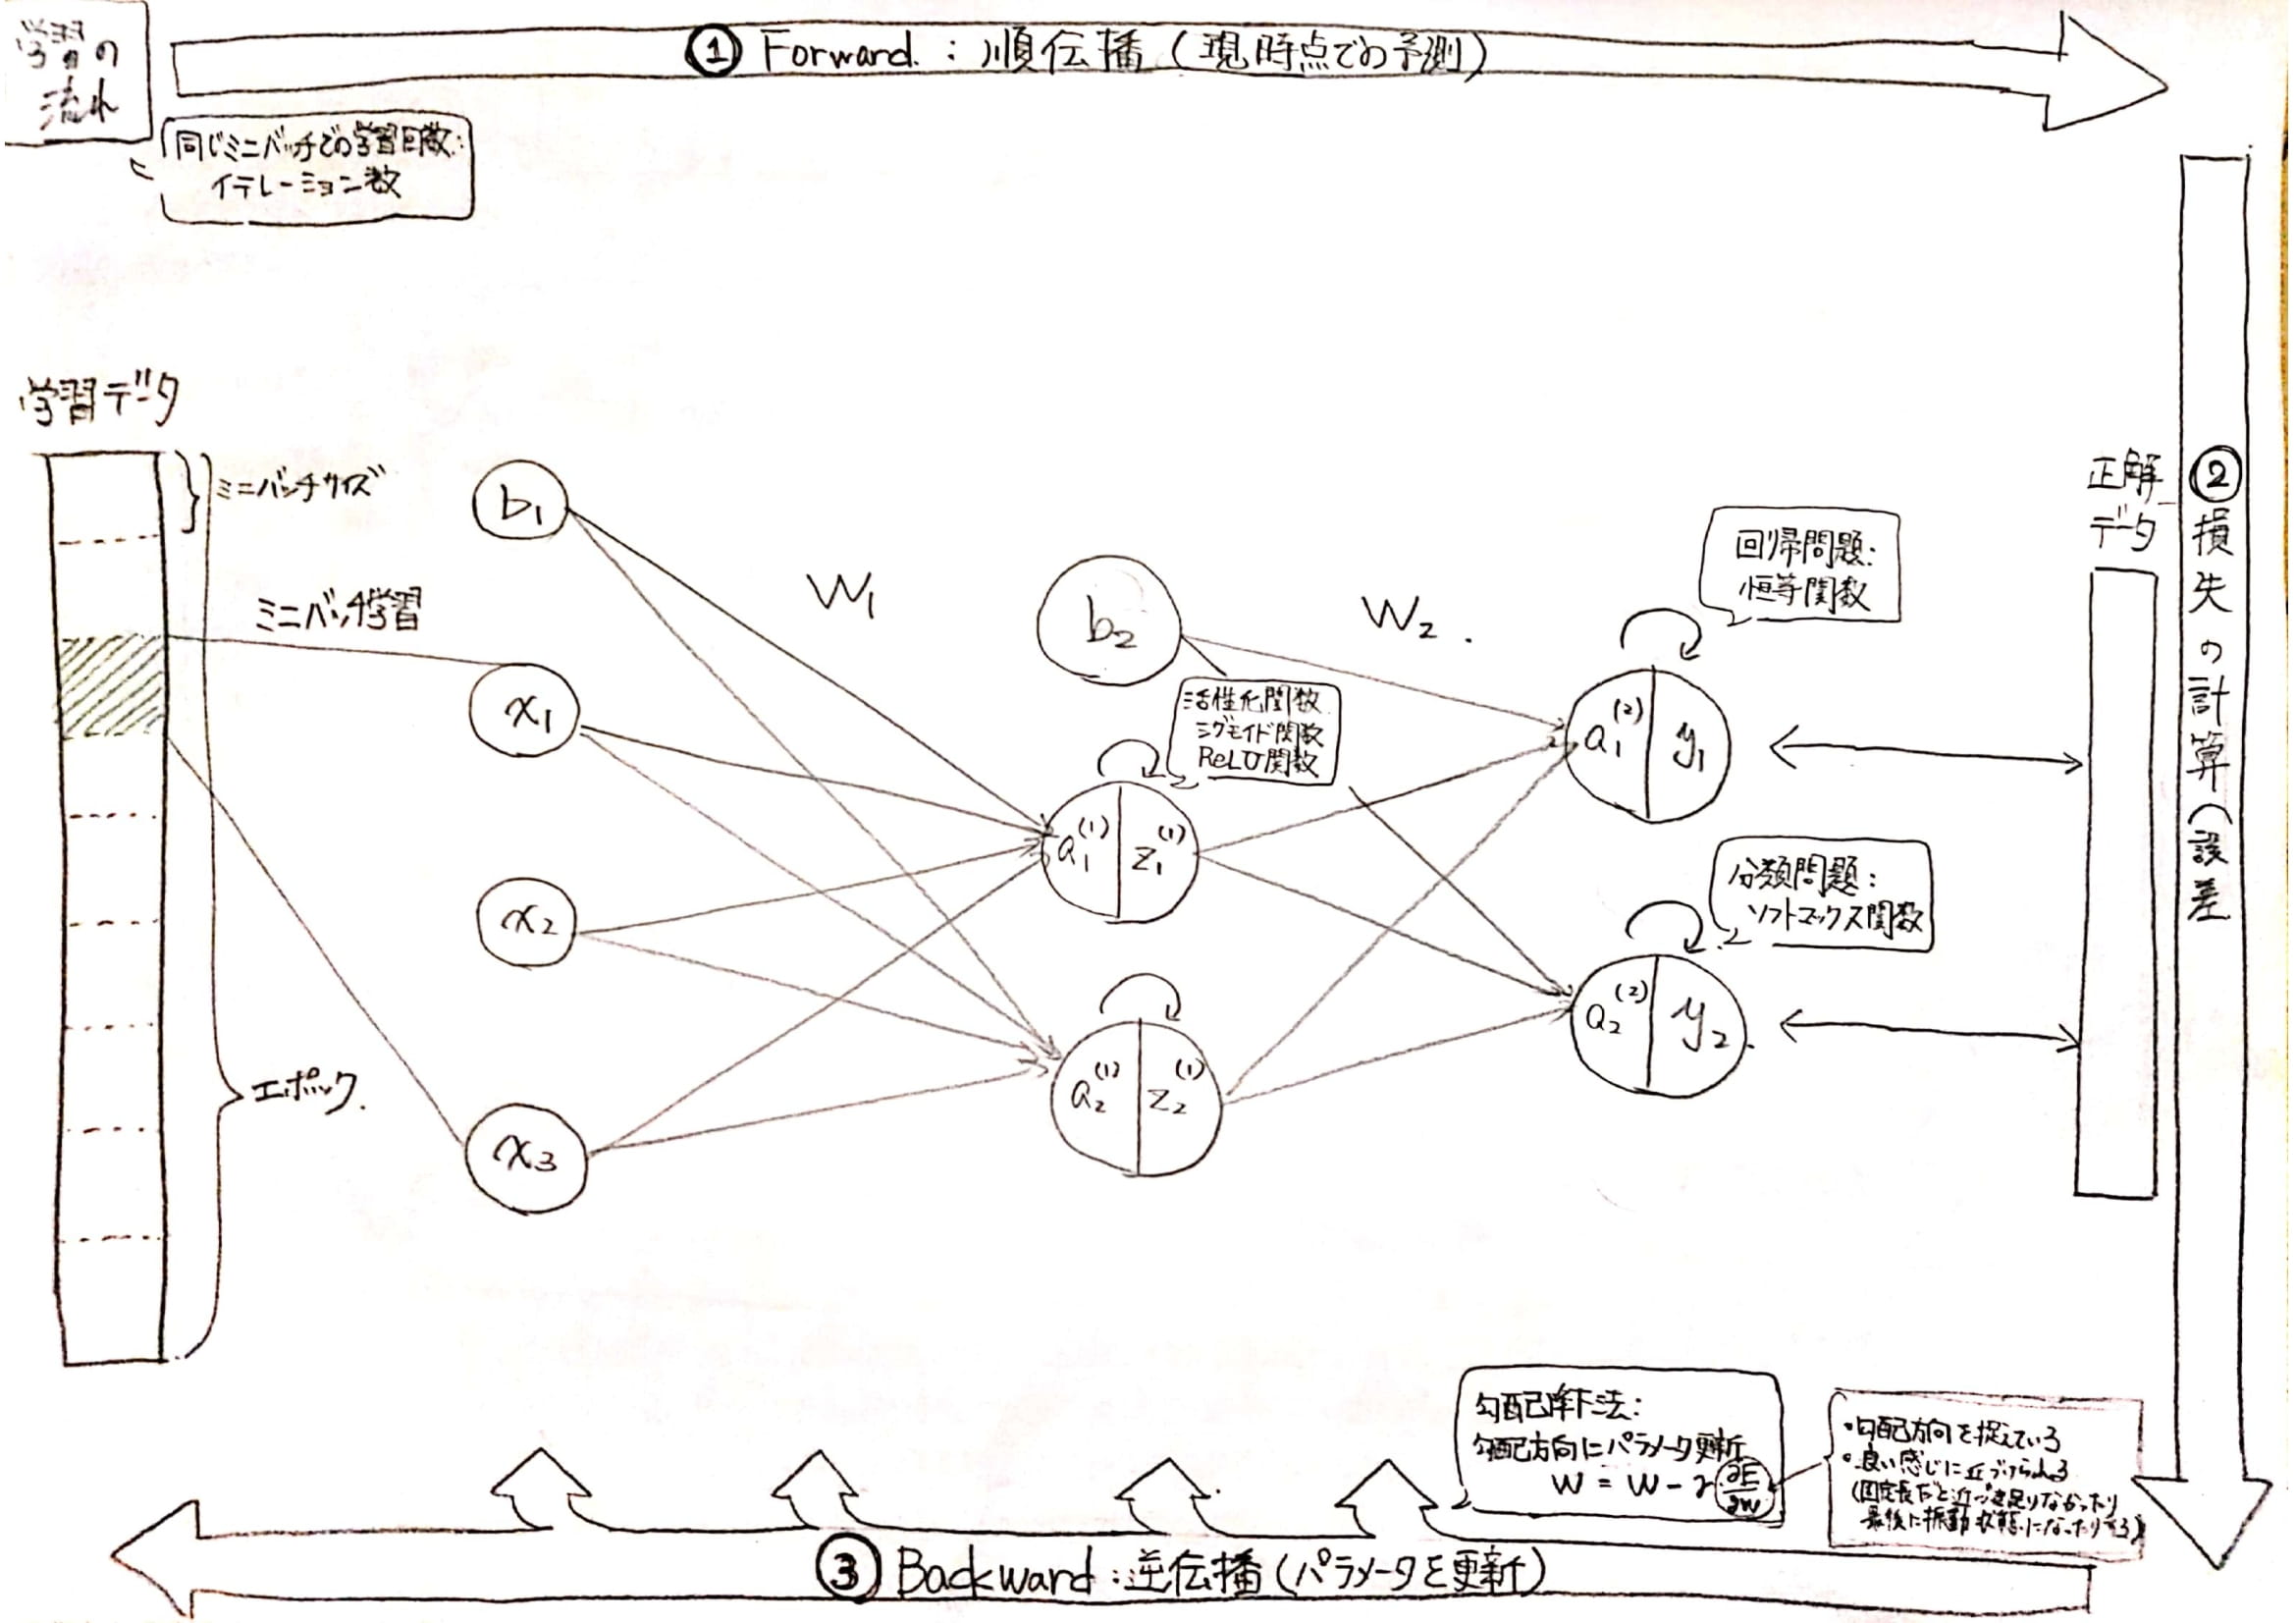 学習の
流れ
① Forward : 順伝播 (現時点での予測)
同じミニバッチでの学習回数:
イテレーション数
学習データ
ミニバッチサイズ
ミニバッチ学習
エポック.
b1
x1
x2
x3
W1
b2
W2 .
活性化関数
シグモイド関数
ReLU関数
a1(1) z1(1)
a2(1) z2(1)
回帰問題:
恒等関数
a1(2) y1
分類問題:
ソフトマックス関数
a2(2) y2
正解
データ
②損失の計算(誤差
勾配降下法:
勾配方向にパラメータ更新
W = W - r ∂E/∂W
・勾配方向を捉えている
・良い感じに近づけられる
(固定長だと近づき足りなかったり
最後に振動状態になったりする)
③ Backward : 逆伝播 (パラメータを更新)